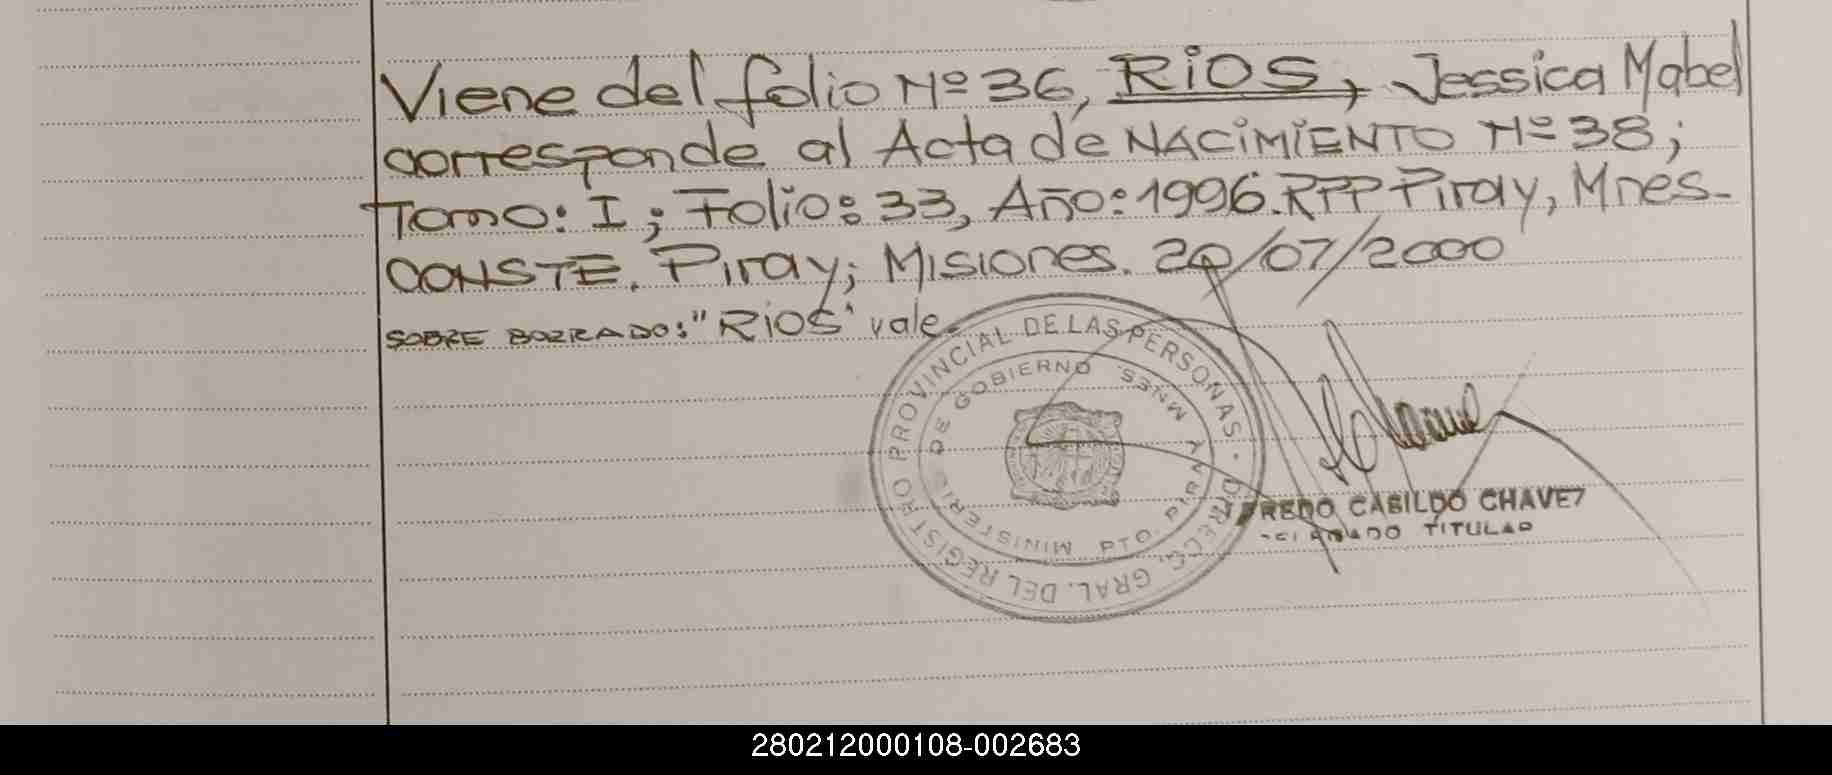 Viene del folio Nº 36, RiOS, Jessica Mabel
corresponde al Acta de NACiMiENTO Nº 38;
Tomo: I; Folio: 33, Año: 1996. RPP Piray, Mnes-
CONSTE. Piray; Misiones. 20/07/2000
SOBRE BORRADO: "RiOS" vale.
DIRECC. GRAL. DEL REGISTRO PROVINCIAL DE LAS PERSONAS.
MINISTERIO DE GOBIERNO
PTO. PIRAY MNES.
FREDO CASILDO CHAVEZ
TITULAR
280212000108-002683